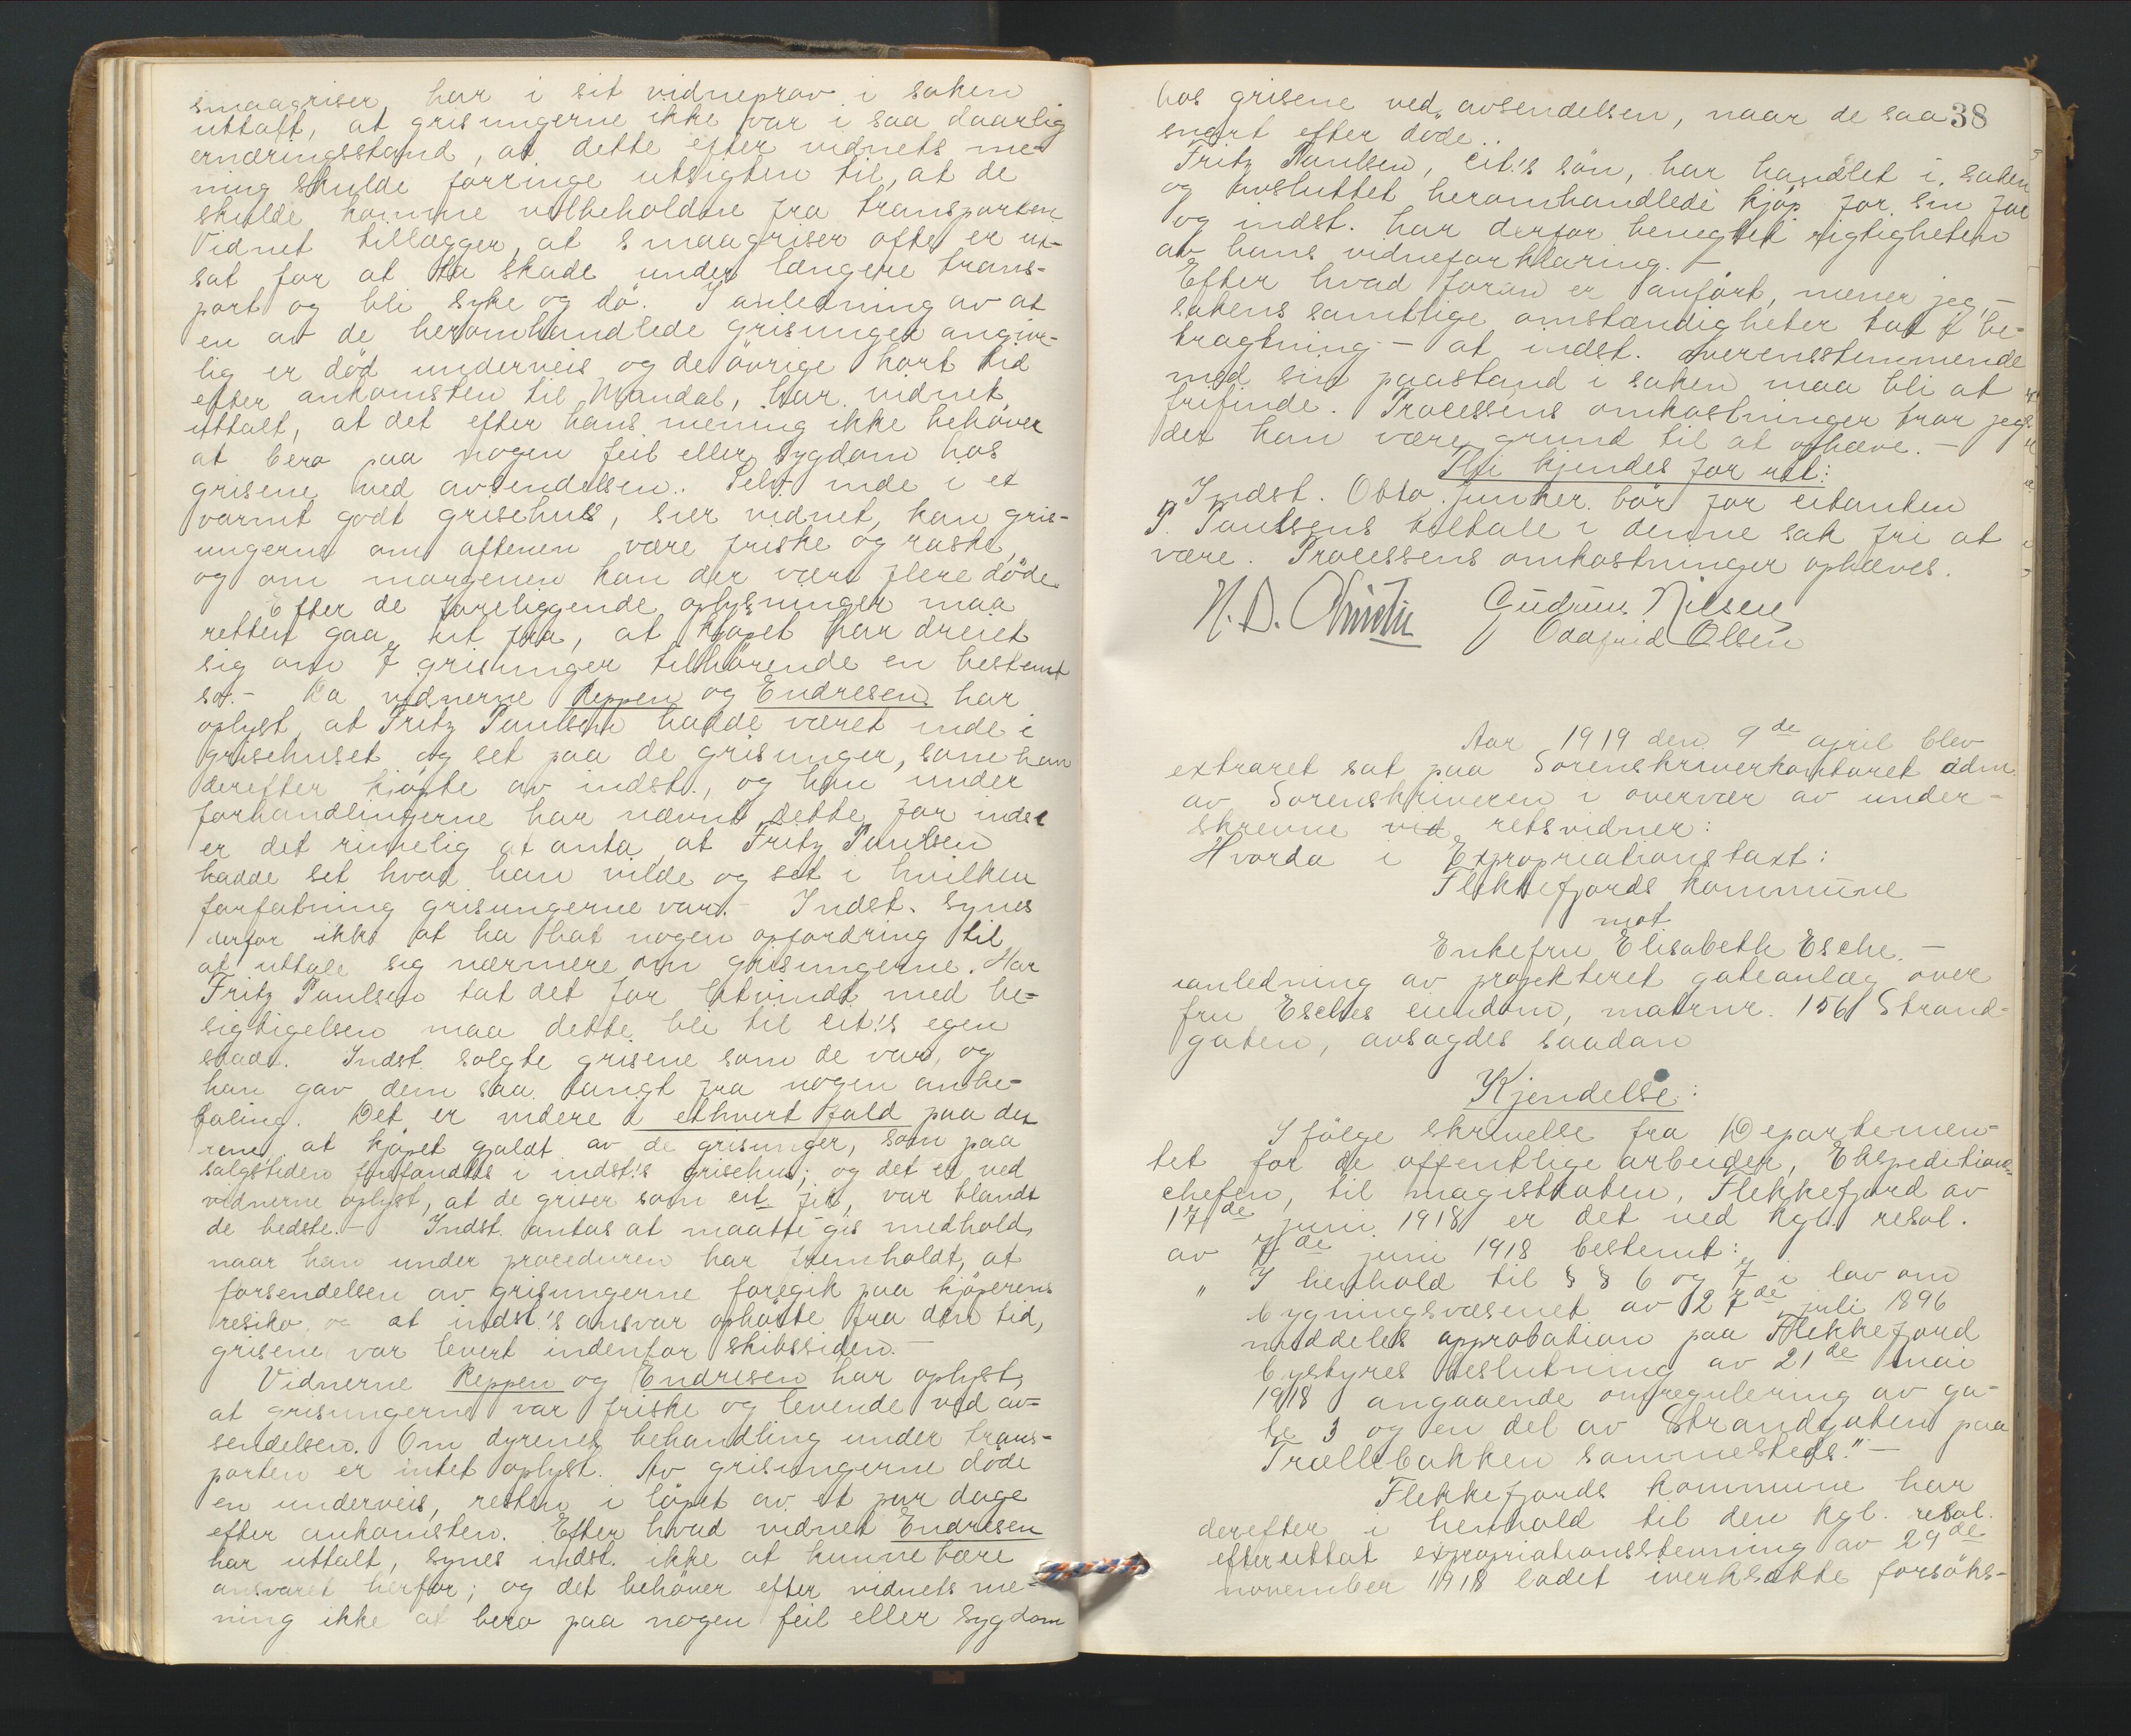 smaagriser, har i sit vidneprov i saken
uttalt, at grisungerne ikke var i saa daarlig
ernæringsstand, at dette efter vidnets me-
ning skulde forringe utsigten til, at de
skulde komme velbeholdne fra transporten
Vidnet tillægger, at smaagriser ofte er ut-
sat for at ta skade under længere trans-
port og bli syke og dö. I anledning av at
en av de heromhandlede grisunger angive-
lig er död underveis og de övrige kort tid
efter ankomsten til Mandal, har vidnet
uttalt, at det efter hans mening ikke behöver
at bero paa nogen feil eller sygdom hos
grisene ved avsendelsen. Selv inde i et
varmt godt grisehus, sier vidnet, kan gris-
ungerne om aftenen være friske og raske,
og om morgenen kan der være flere döde.
Efter de foreliggende oplysninger maa
retten gaa ut fra, at kjöpet har dreiet
sig om 7 grisunger tilhörende en bestemt
so. - Da vidnerne Reppen og Endresen har
oplyst at Fritz Paulsen hadde været inde i
grisehuset og set paa de grisunger, som han
derefter kjöpte av indst., og han under
forhandlingerne har nævnt dette for indst
er det rimelig at anta at Fritz Paulsen
hadde set hvad han vilde og set i hvilken
forfatning grisungerne var. - Indst. synes
derfor ikke at ha hat nogen opfordring til
at uttale sig nærmere om grisungerne. Har
Fritz Paulsen tat det for letvindt med be-
sigtigelsen maa dette bli til cit.'s egen
skade. Indst. solgte grisene som de var, og
han gav dem saa langt fra nogen anbe-
faling. Det er videre i ethvert fald paa det
rene, at kjöpet gjaldt av de grisunger, som paa
salgstiden forfandtes i indst.'s grisehus; og det er ved
vidnerne oplyst, at de griser som cit fik, var blandt
de bedste. - Indst. antas at maatte gis medhold,
naar han under proceduren har fremholdt, at
forsendelsen av grisungerne foregik paa kjöperens
resiko og at indst.'s ansvar ophörte fra den tid,
grisene var levert indenfor skibssiden. -
Vidnerne Reppen og Endresen har oplyst,
at grisungerne var friske og levende ved av-
sendelsen. Om dyrenes behandling under trans-
porten er intet oplyst. Av grisungerne döde
en underveis, resten i löpet av et par dage
efter ankomsten. Efter hvad vidnet Endresen
har uttalt, synes indst. ikke at kunne bære
ansvaret herfor; og det behöver efter vidnets me-
ning ikke at bero paa nogen feil eller sygdom
38
hos grisene ved avsendelsen, naar de saa
snart efter döde..
Fritz Paulsen, cit.'s sön, har handlet i saken
og avsluttet heromhandlede kjöp for sin far
og indst. har derfor benegtet rigtigheten
av hans vidneforklaring. -
Efter hvad foran er anfört, mener jeg, -
sakens samtlige omstændigheter tat i be-
tragtning - at indst. overensstemmende
med sin paastand i saken maa bli at
frifinde. Processens omkostninger tror jeg
der kan være grund til at ophæve. -
Thi kjendes for ret:
Indst. Otto Junker bör for citanten
P. Paulsens tiltale i denne sak fri at
være. Processens omkostninger ophæves.
H. D. Christie Gudrun Nilsen
Oddfrid Olsen
Aar 1919 den 9de april blev
extraret sat paa Sorenskriverkontoret adm.
av Sorenskriveren i overvær av under-
skrevne vid retsvidner:
Hvorda i Expropriationstaxt:
Flekkefjords kommune
mot
Enkefru Elisabeth Esche. -
ianledning av projekteret gateanlæg over
fru Esches eiendom, matrnr. 156 Strand-
gaten, avsagdes saadan
Kjendelse:
Ifölge skrivelse fra Departemen-
tet for de offentlige arbeider, Ekspeditions-
chefen, til magistraten, Flekkefjord av
17de juni 1918 er det ved kgl. resol.
av 7de juni 1918 bestemt:
" I henhold til § § 6 og 7 i lov om
bygningsvæsenet av 27de juli 1896
meddeles approbation paa Flekkefjord
bystyres beslutning av 21de mai
1918 angaaende omregulering av ga-
te 3 og en del av Strandgaten paa
Trællebakken sammesteds." -
Flekkefjords kommune har
derefter i henhold til den kgl. resol.
efter uttat expropriationsstevning av 29de
november 1918 ladet iverksætte forsöks-